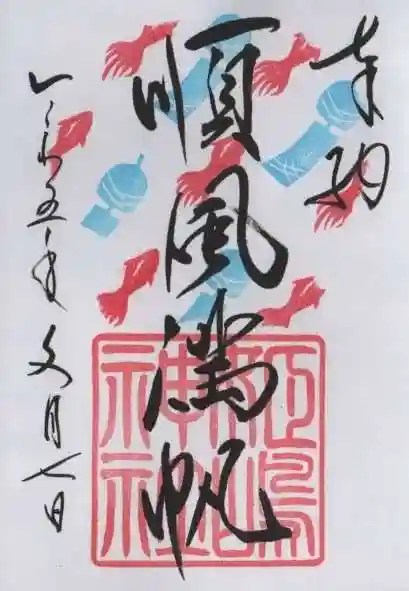 奉納
順風満帆
令和五年文月七日